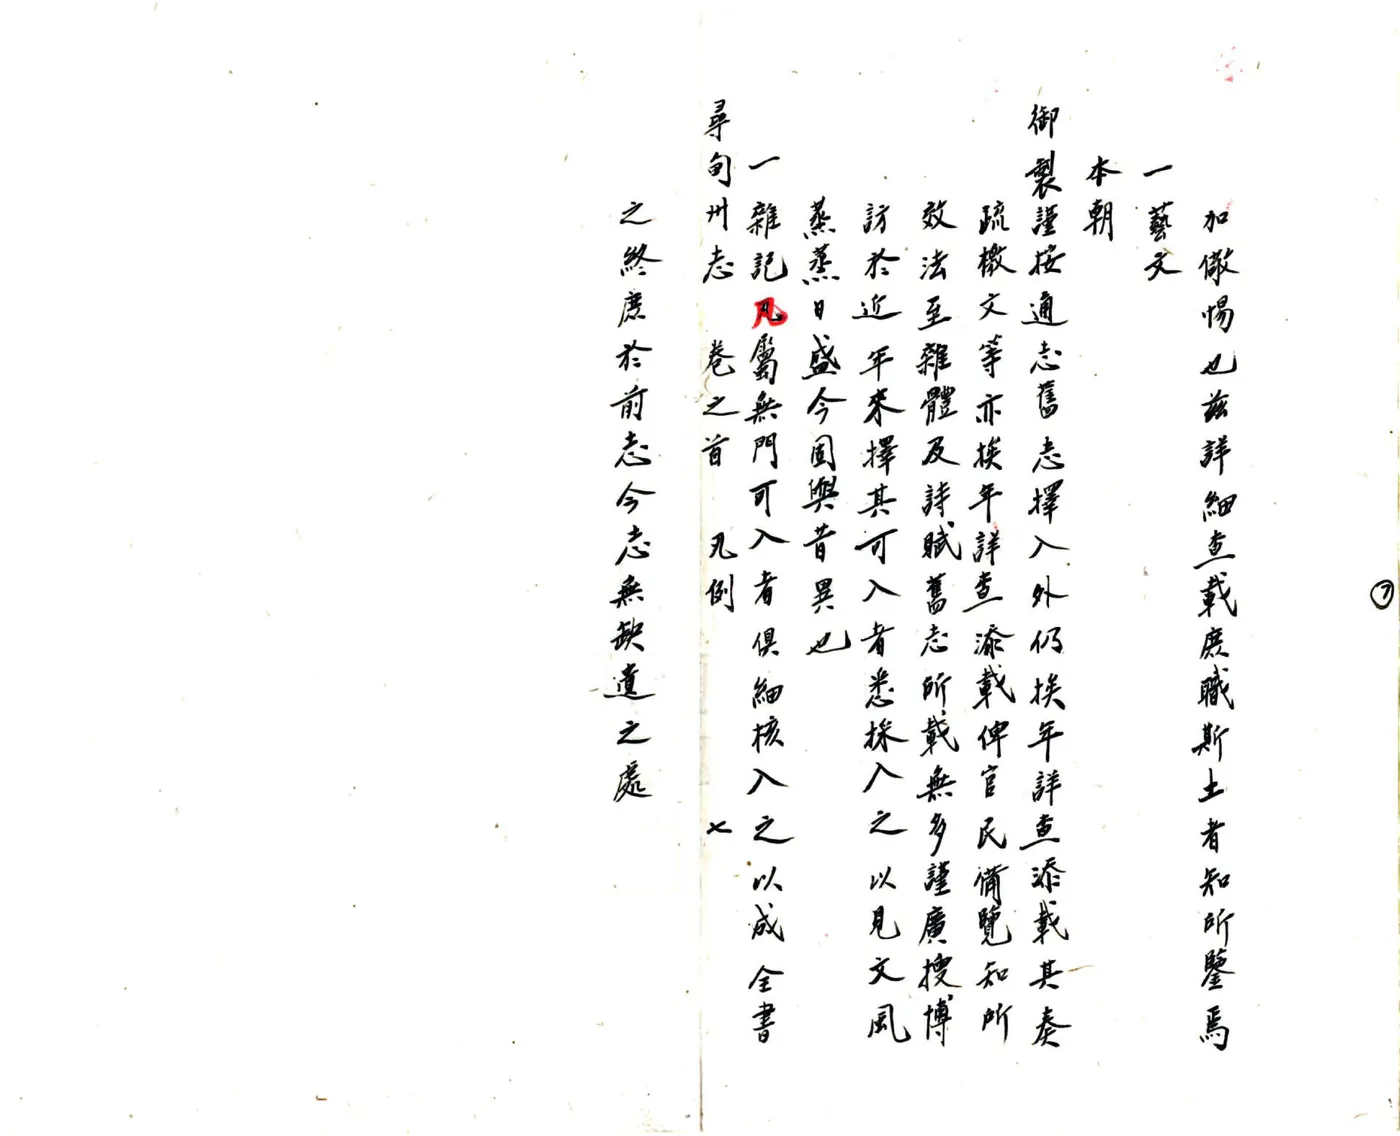 加儆惕也茲詳細查載庶職斯土者知所鑒焉
一藝文
本朝
御製謹按通志舊志擇入外仍挨年詳查添載其奏
疏檄文等亦挨年詳查添載俾官民備覽知所
效法至雜體及詩賦舊志所載無多謹廣搜博
訪於近年來擇其可入者悉採入之以見文風
蒸蒸日盛今固與昔異也
一雜記凡屬無門可入者俱細核入之以成全書
尋甸州志 卷之首 凡例 七
之終庶於前志今志無缺遺之處